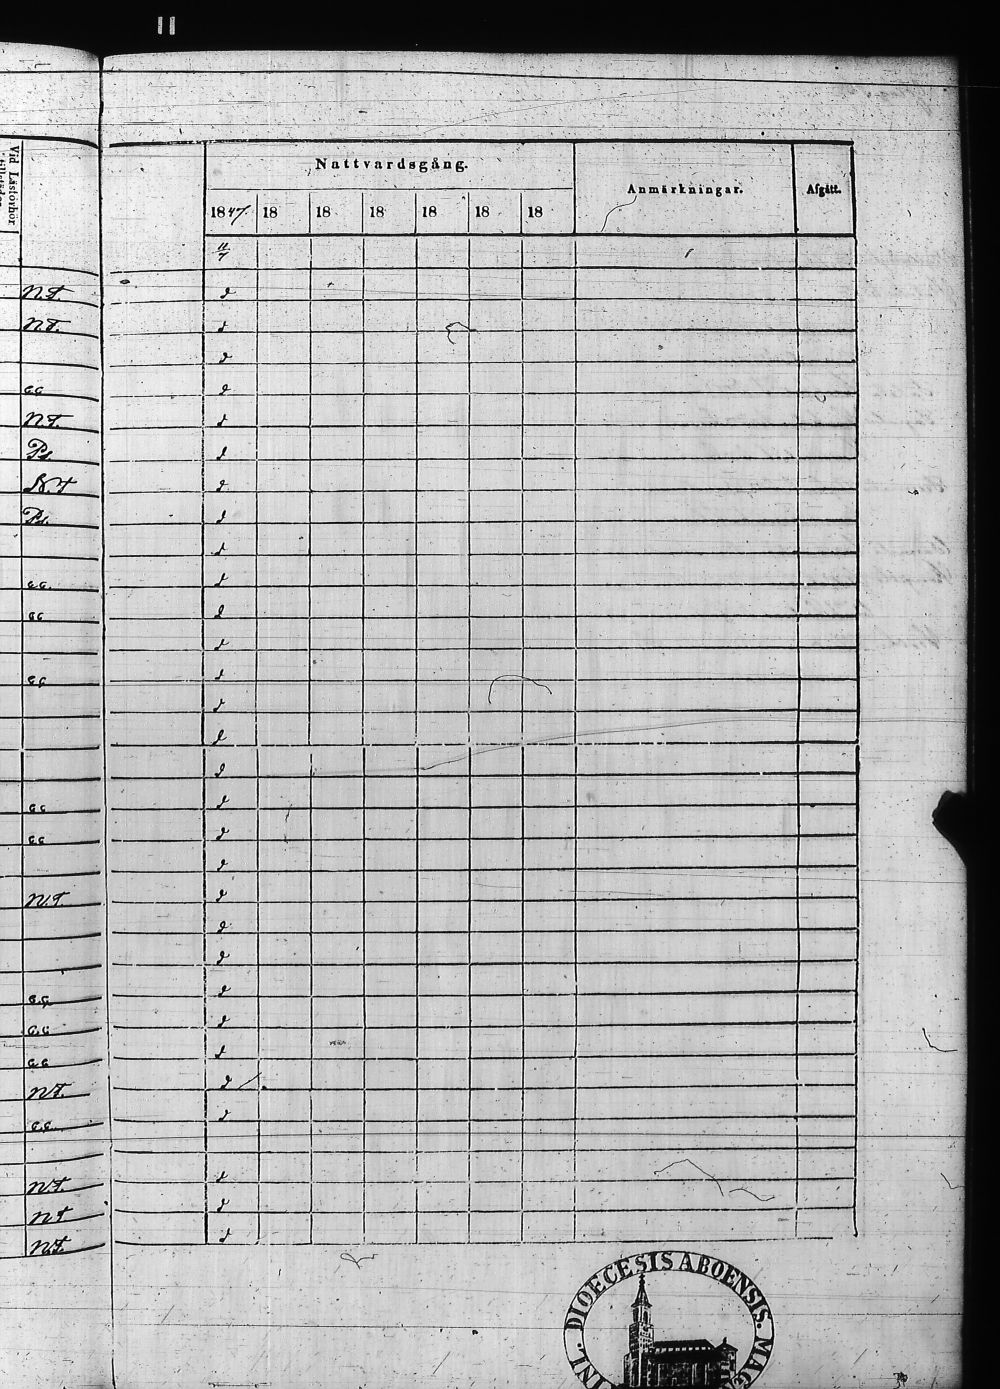 11
Vid Läsförhör
Nattvardsgång.
Anmärkningar.
Afgått.
1847. 18 18 18 18 18 18
11/7
N.T. d
N.T. d
d
cc d
N.T. d
Ps. d
N.T d
Ps. d
d
cc. d
cc d
d
cc d
d
d
d
cc d
cc d
d
N.T. d
d
d
c.c. d
c.c d
cc d
N.T. d
c.c. d
N.T. d
N.T d
N.T. d
DIOECESIS ABOENSIS. MAG
INL.